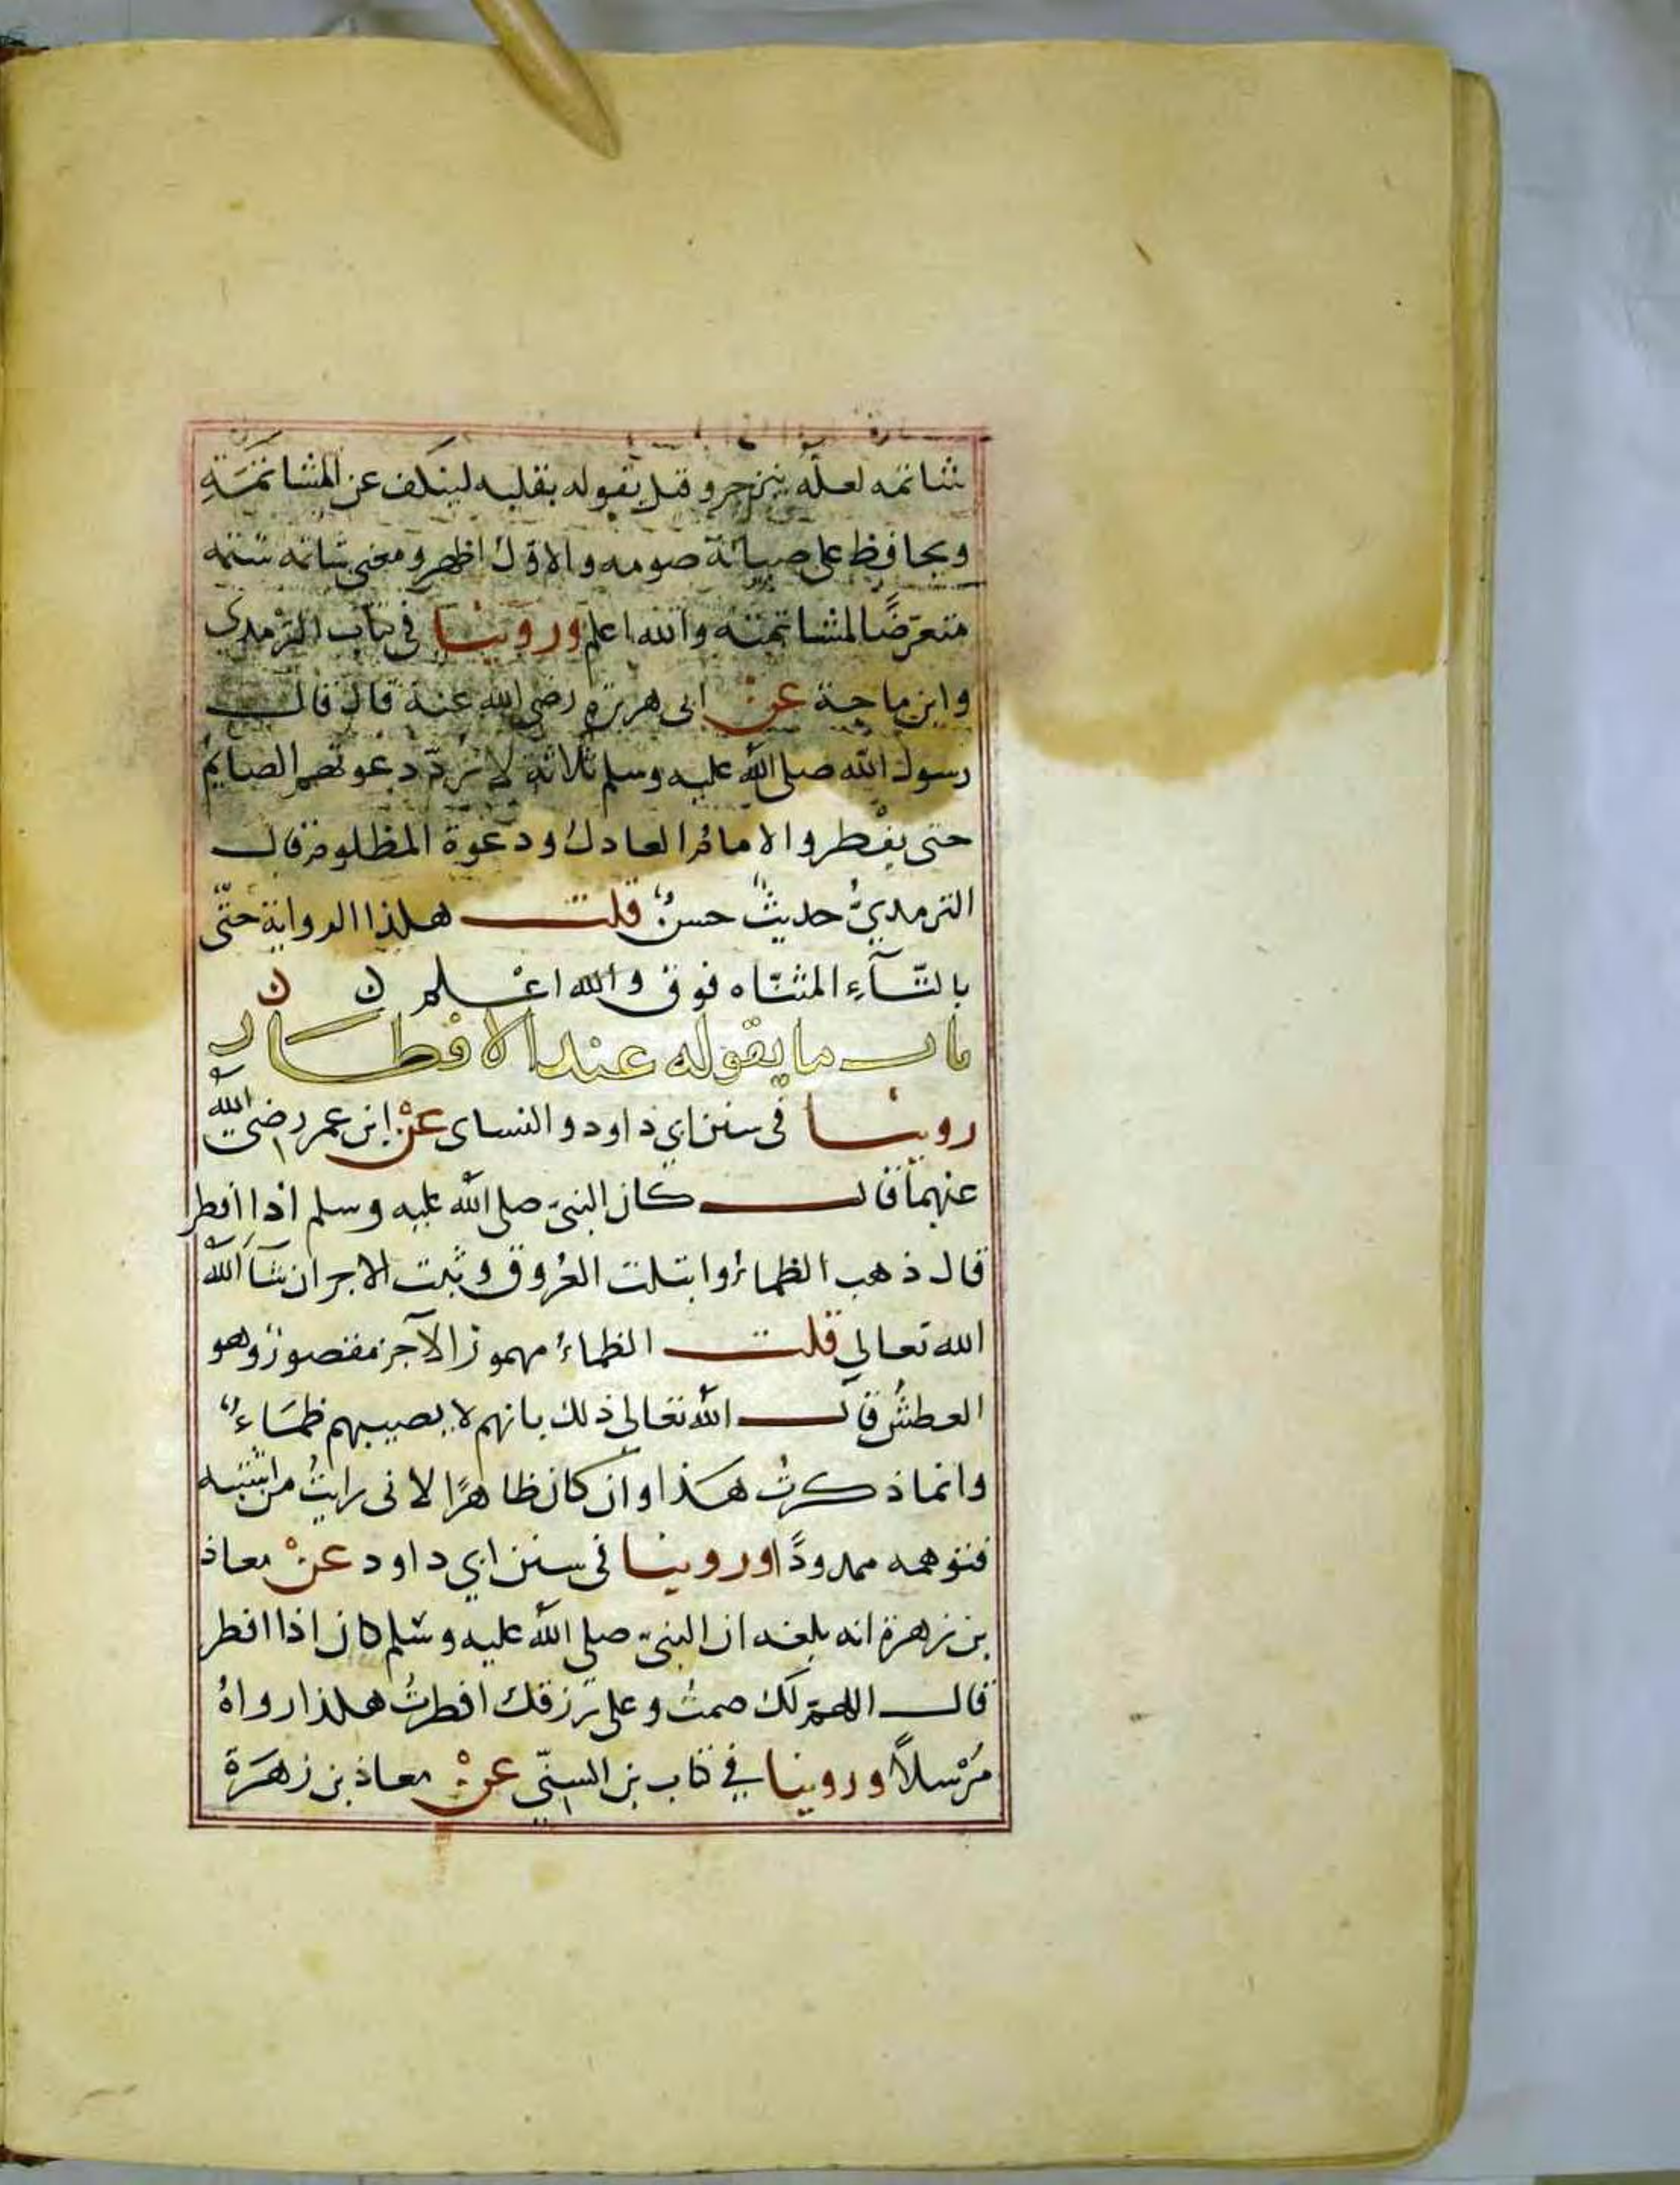 شاتمه لعله ينزجر وقيل يقوله بقلبه لينكف عن المشاتمَةِ
ويحافظ على صيانة صومه والاوّل اظهر ومعنى شاتمه شتمه
متعرّضًا لمشاتمته والله اعلم وروينا في كتاب الترمدي
وابن ماجة عنْ ابى هريرة رضي الله عنه قال قال
رسول الله صلى الله عليه وسلم ثلاثة لا تردّ دعوتهم الصايمُ
حتى يفْطر والامامُ العادلُ ودعوة المظلوم قال
الترمديُّ حديثٌ حسنٌ قلت هكذا الرواية حتّى
بالتّآءِ المثنّاه فوق والله اعْلم ن ن
باب ما يقوله عند الافْطار
روينا فى سنن ابي داود والنساى عنْ ابن عمر رضى الله
عنهما قال كان النبيّ صلى الله عليه وسلم اذا افطر
قال ذهب الظماءُ وابتلت العُروق وثبت الاجر ان شآ الله
الله تعالي قلت الظماءُ مهموز الآخر مقصور وهو
العطشُ قال الله تعالى ذلك بانهم لا يصيبهم ظمَاءٌ
وانما ذكرتُ هَذا وان كان ظاهرًا لانى رايتُ من اشتبه
فتوهمه ممدودًا وروينا فى سنن ابي داود عنْ معاذ
بن زهرة انه بلغه ان النبيّ صلى الله عليه وسلم كان اذا افطر
قال اللهمّ لكَ صمتُ وعلى رزقك افطرتُ هكذا رواهُ
مُرْسلاً وروينا في كتاب بن السنّي عنْ معاذ بن زهَرَة